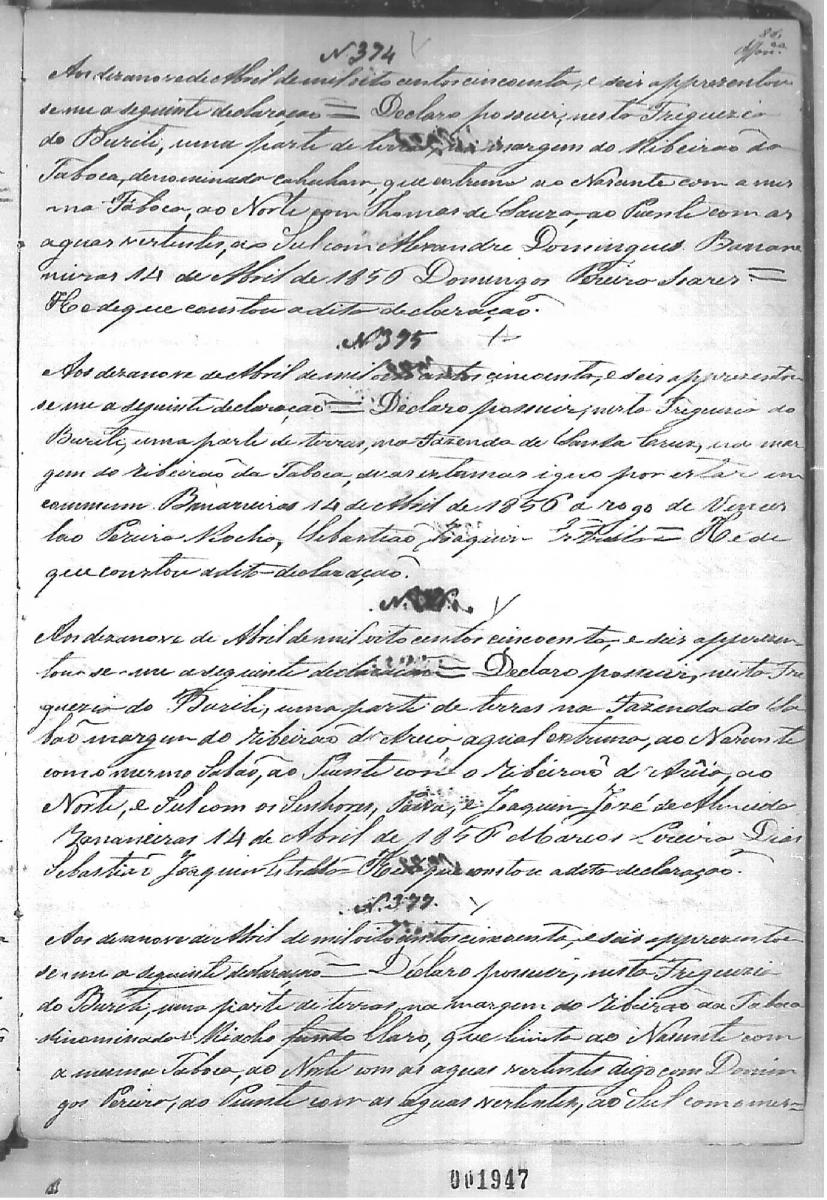 N 374
Aos dezanove de Abril de mil oito centos cincoenta, e seis apprezentou
se me a seguinte declaração = Declaro possuir, nesta Freguezia
do Buriti, uma parte de terras, na margem do Ribeirão da
Taboca, denominado que extrema ao Nascente com a mes
ma Taboca, ao Norte com Thomas de Souza, ao Puente com as
aguas vertentes, ao Sul com Alexandre Domingues Banane
neiras 14 de Abril de 1856 Domingos Pereira Soares =
He de que constou a dita declaração.
N 375
Aos dezanove de Abril de mil oito centos cincoenta, e seis apprezentou
se me a seguinte declaração = Declaro possuir, nesta Freguezia do
Buriti, uma parte de terras, na Fazenda de Santa Cruz, na mar
gem do ribeirão da Taboca, por estar em
commum Bananeiras 14 de Abril de 1856 a rogo de Vences
lao Pereira Rocha, Sebastião Joaquim = He de
que constou a dita declaração.
N.
Aos dezanove de Abril de mil oito centos cincoenta, e seis apprezen
tou se me a seguinte declaração = Declaro possuir, nesta Fre
guezia do Buriti, uma parte de terras na Fazenda do Sa
bão margem do ribeirão d'Areia, a qual extrema, ao Nascente
com o mesmo Sabão, ao Puente com o ribeirão d'Arêia, ao
Norte, e Sul com os Senhores, Paiva, e Joaquim José de Almeida
Bananeiras 14 de Abril de 1856 Marcos Pereira Dias
Sebastião Joaquim He de que constou a dita declaração.
N. 377.
Aos dezanove de Abril de mil oito centos cincoenta, e seis apprezentou
se me a seguinte declaração = Declaro possuir, nesta Freguezia
do Buriti, uma parte de terras, na margem do ribeirão da Taboca
dinominado Riacho fundo Claro, que limita ao Nascente com
a mesma Taboca, ao Norte com as aguas vertentes digo com Domin
gos Pereira, ao Puente com as aguas vertentes, ao Sul com o mes=
001947